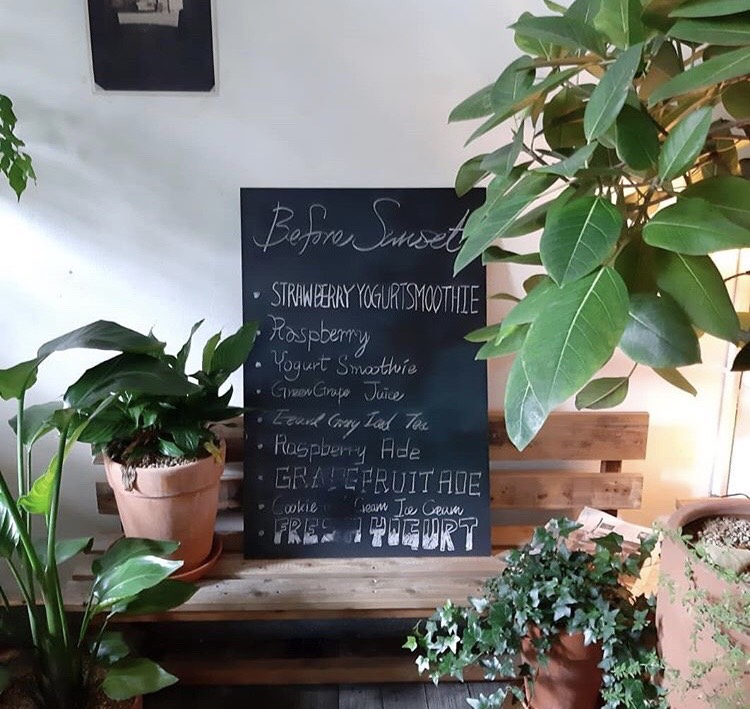 Before Sunset
STRAWBERRY YOGURT SMOOTHIE
Raspberry
Yogurt Smoothie
Green Grape Juice
Iced Tea
Raspberry Ade
GRAPEFRUIT ADE
Cookie Cream Ice Cream
FRESH YOGURT